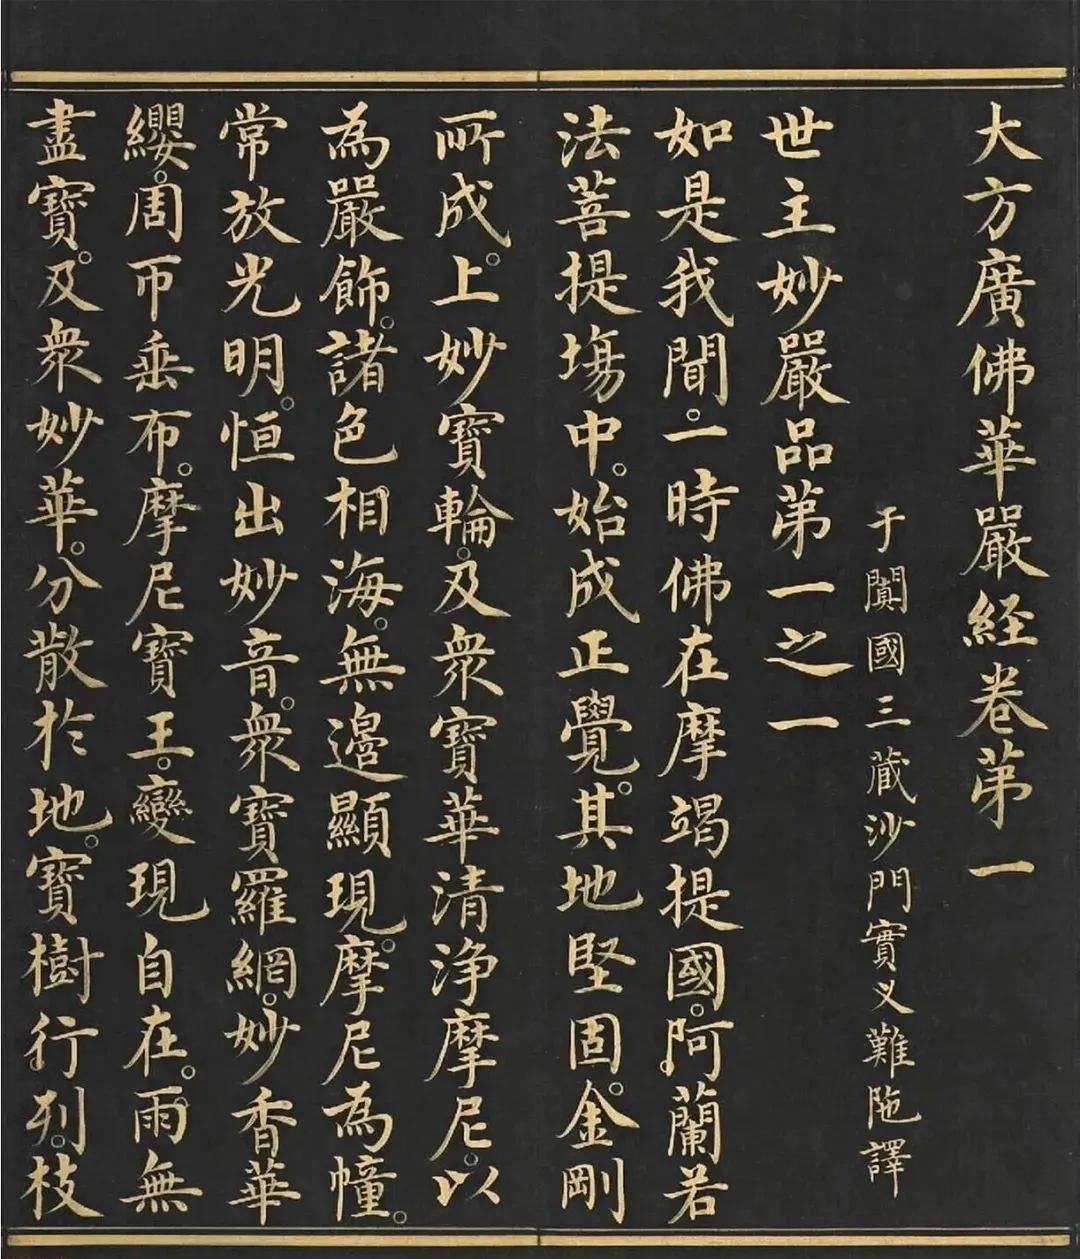 大方廣佛華嚴経卷苐一
于闐國三藏沙門實义難陁譯
世主妙嚴品苐一之一
如是我聞。一時佛在摩竭提國。阿蘭若
法菩提塲中。始成正覺。其地堅固。金剛
所成。上妙寶輪。及衆寶華清淨摩尼。以
為嚴飾。諸色相海。無邊顯現。摩尼為幢。
常放光明。恒出妙音。衆寶羅網。妙香華
纓。周帀垂布。摩尼寶王。變現自在。雨無
盡寶。及衆妙華。分散於地。寶樹行列。枝